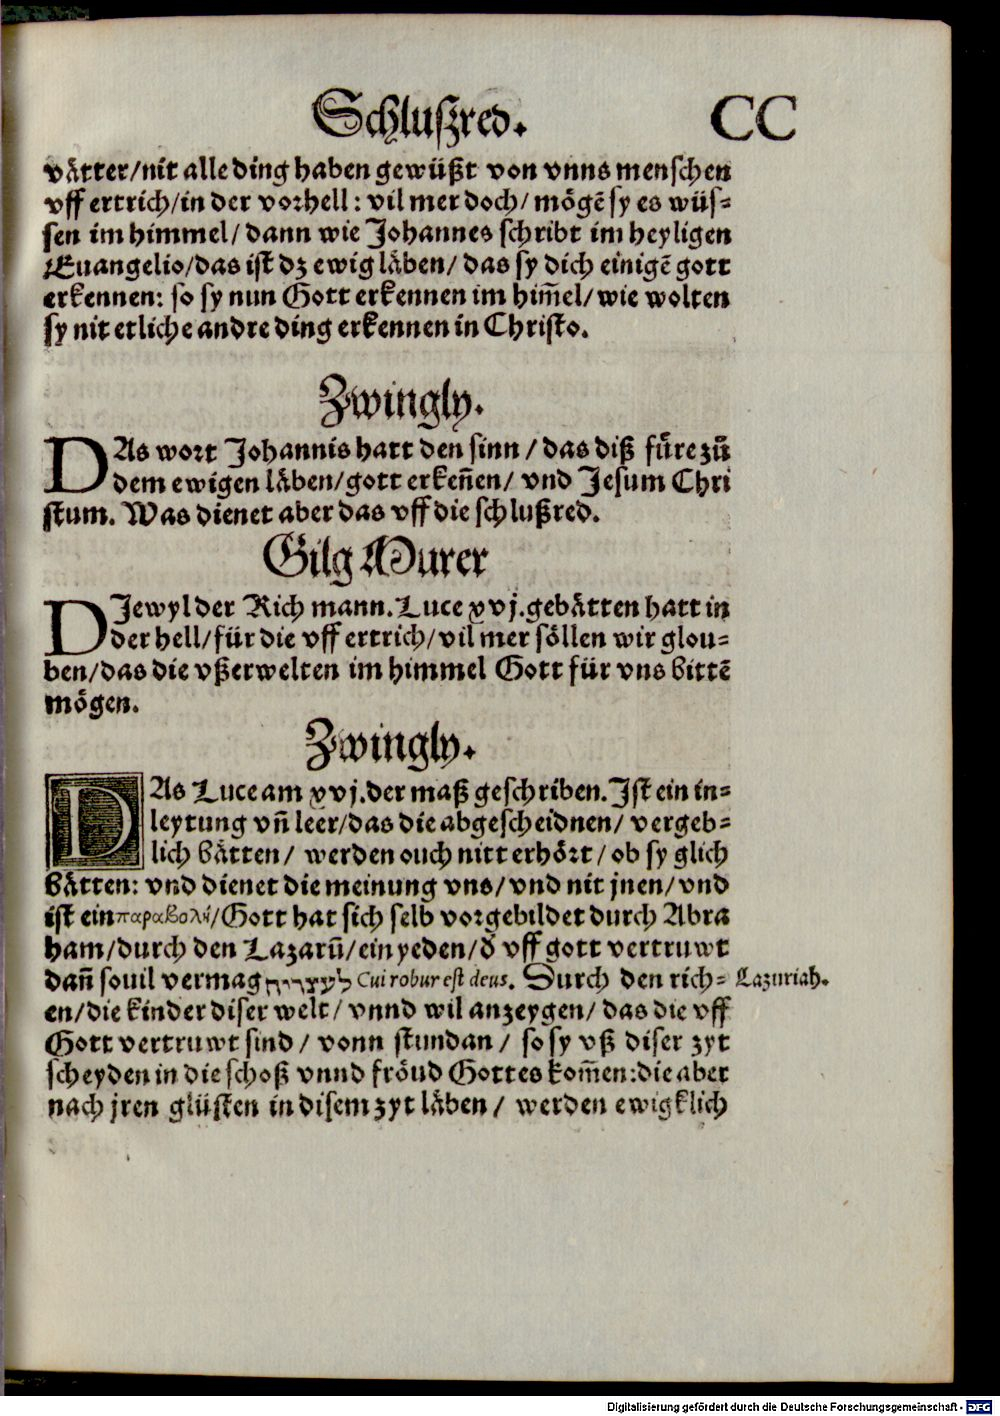 Schluſzred. CC
vätter/nit alle ding haben gewüßt von vnns menſchen
vff ertrich/in der vorhell: vil mer doch/ mögē ſy es wüſ-
ſen im himmel/ dann wie Johannes ſchribt im heyligen
Euangelio/das iſt dz ewig läben/ das ſy dich einigē gott
erkennen: ſo ſy nun Gott erkennen im him̄el/ wie wolten
ſy nit etliche andre ding erkennen in Chriſto.
Zwingly.
DAs wort Johannis hatt den ſinn / das diß fu̓re zů
dem ewigen läben/gott erkeñen/ vnd Jeſum Chri
ſtum. Was dienet aber das vff die ſchlußred.
Gilg Murer
DJewyl der Rich mann. Luce xvj. gebätten hatt in
der hell/für die vff ertrich/vil mer ſöllen wir glou-
ben/das die vßerwelten im himmel Gott für vns bittē
mögen.
Zwingly.
DAs Luce am xvj. der maß geſchriben. Jſt ein in-
leytung vñ leer/das die abgeſcheidnen/ vergeb-
lich bätten/ werden ouch nitt erhört/ ob ſy glich
bätten: vnd dienet die meinung vns/ vnd nit jnen/ vnd
iſt ein παραβολὴ/Gott hat ſich ſelb vorgebildet durch Abra
ham/durch den Lazarū/ein yeden/ď vff gott vertruwt
dañ ſouil vermag לעצריה Cui robur eſt deus. Durch den rich- Lazuriah.
en/die kinder diſer welt/ vnnd wil anzeygen/ das die vff
Gott vertruwt ſind/ vonn ſtundan/ ſo ſy vß diſer zyt
ſcheyden in die ſchoß vnnd fröud Gottes kom̄en: die aber
nach jren glüſten in diſem zyt läben/ werden ewigklich
Digitalisierung gefördert durch die Deutsche Forschungsgemeinschaft - DFG